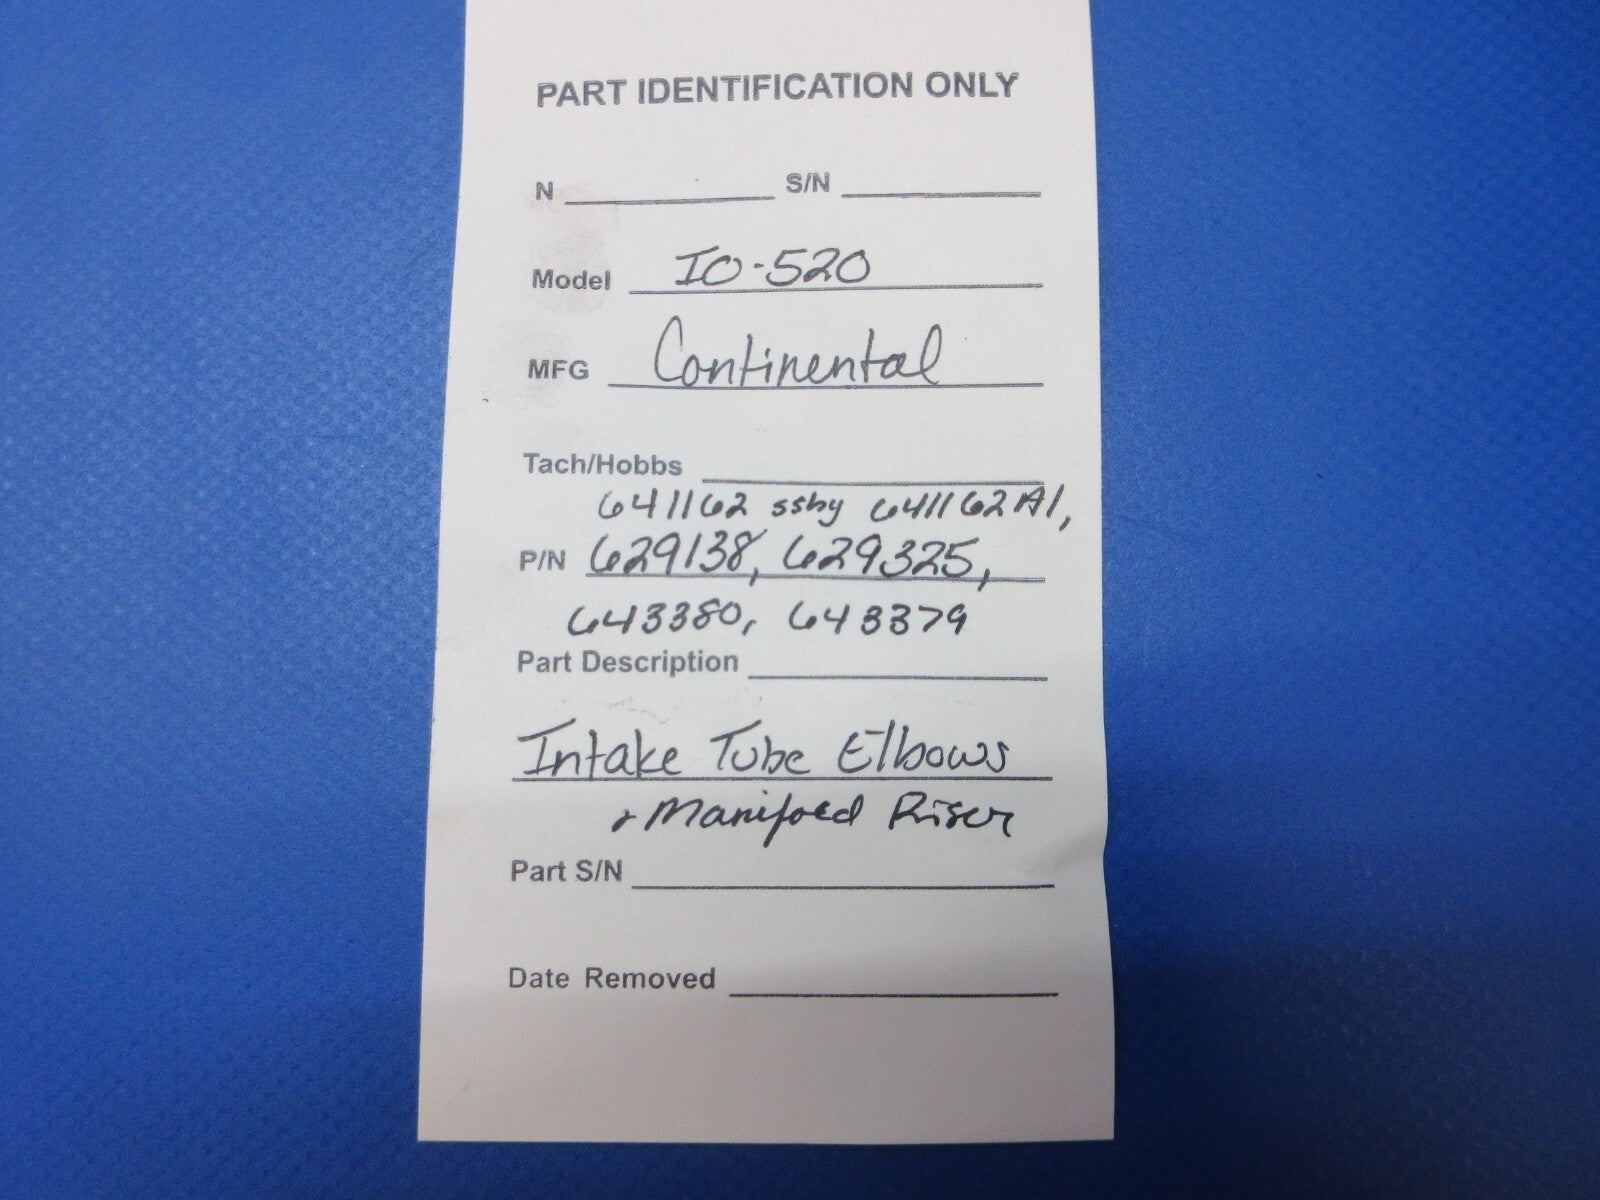 PART IDENTIFICATION ONLY
N S/N
Model IO-520
MFG Continental
Tach/Hobbs
641162 ssby 641162A1,
P/N 629138, 629325,
643380, 643379
Part Description
Intake Tube Elbows
& Manifold Riser
Part S/N
Date Removed